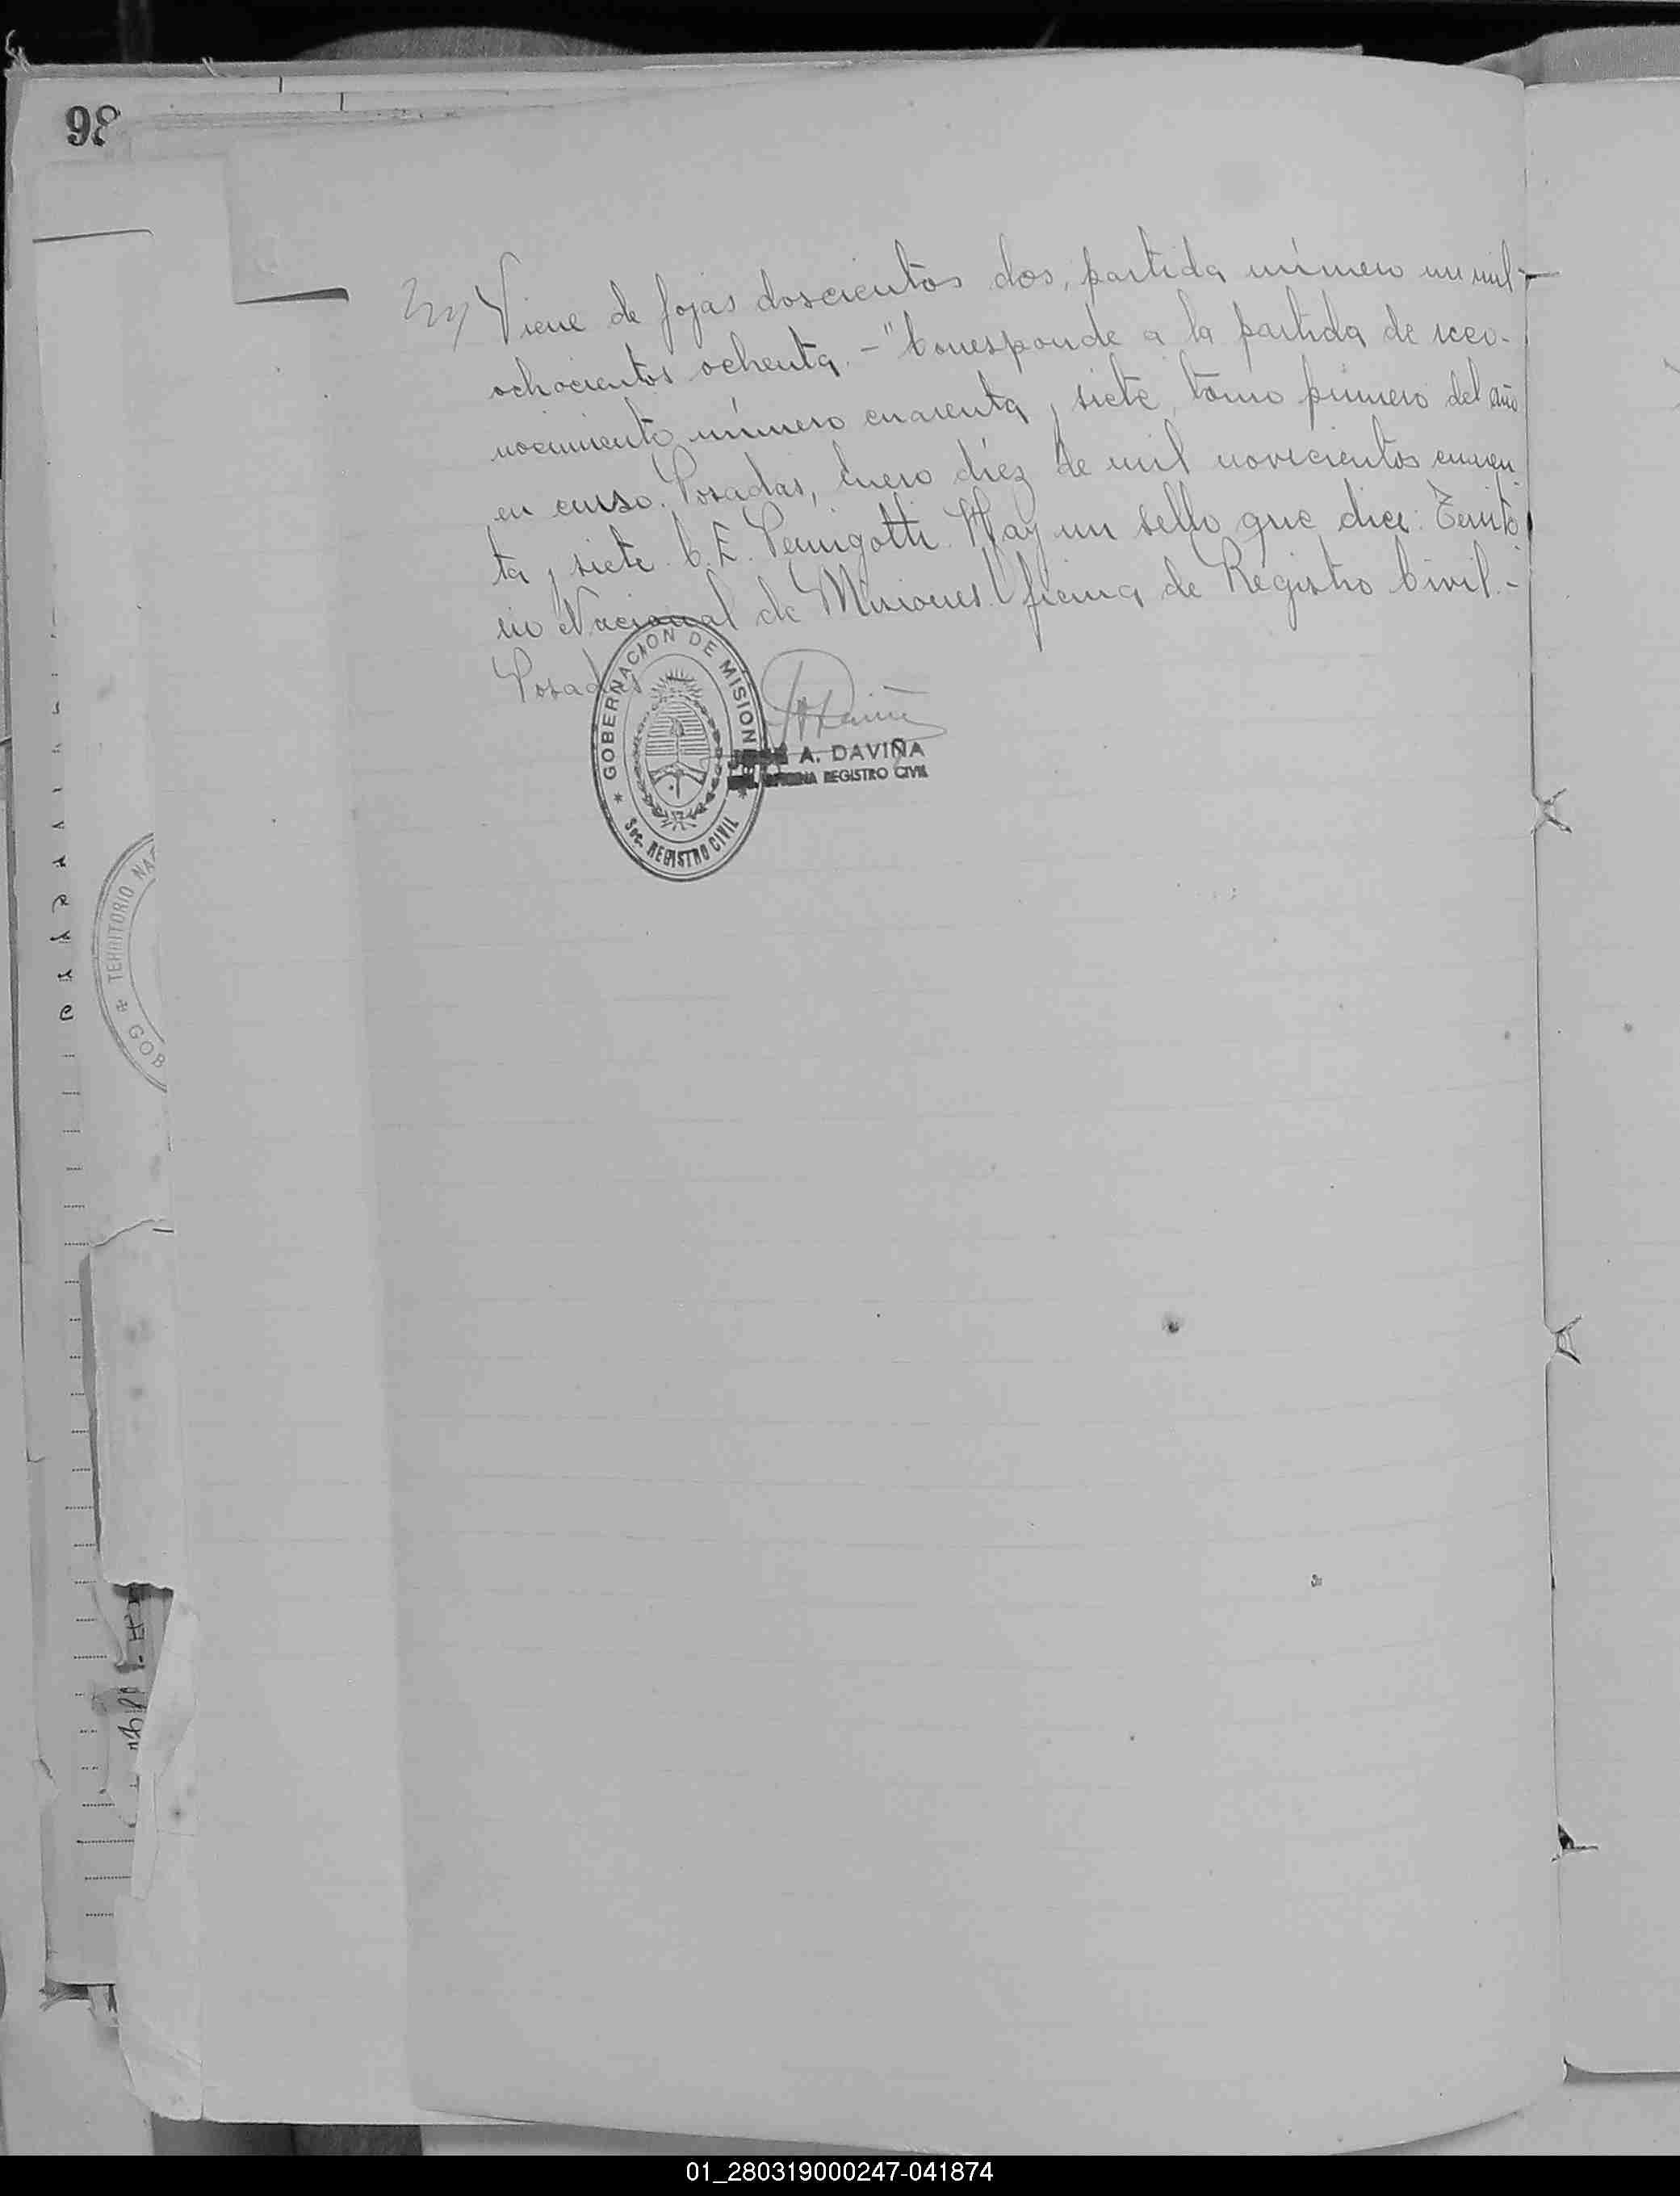 98
Viene de fojas doscientos dos, partida número un mil
ochocientos ochenta. - "Corresponde a la partida de reco-
nocimiento número cuarenta y siete, tomo primero del año
en curso. Posadas, Enero diez de mil novecientos cuaren
ta y siete. C. E. Pernigotti. Hay un sello que dice: Territo
rio Nacional de Misiones. Oficina de Registro Civil. -
Posadas
GOBERNACION DE MISION
Sec. REGISTRO CIVIL
JOSE A. DAVIÑA
OFICINA REGISTRO CIVIL
TERRITORIO NAC
GOB
01_280319000247-041874